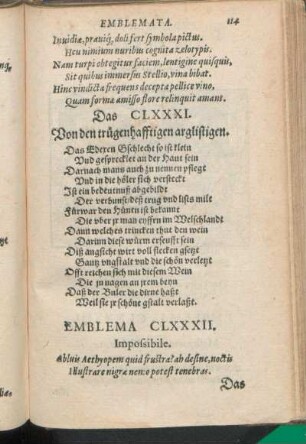 EMBLEMATA. 114
Inuidiæ, prauiq́; doli fert symbola pictus.
Heu nimium nuribus cognita zelotypis.
Nam turpi obtegitur faciem, lentigine quisquis,
Sit quibus immersus Stellio, vina bibat.
Hinc vindicta frequens decepta pellice vino,
Quam formæ amisso flore relinquit amans.
Das CLXXXI.
Von den trügenhafftigen arglistigen.
Das Ederen Gschlecht so ist klein
Vnd gesprecklet an der Haut sein
Darnach mans auch zu nennen pflegt
Vnd in die höler sich versteckt
Ist ein bedeutnuß abgebildt
Der verbunst deß trug vnd lists milt
Fürwar den Hüren ist bekannt
Die vber jr man eyffren im Welschlandt
Dann welches trincken thut den wein
Darinn diese würm erseufft sein
Diß angsicht wirt voll flecken gsetzt
Gantz vngstalt vnd die schön verletzt
Offt reichen sich mit diesem Wein
Die zu nagen an jrem beyn
Daß der Buler die dirne haßt
Weil sie jr schöne gstalt verlaßt.
EMBLEMA CLXXXII.
Impossibile.
Abluis Aethyopem quid frustra? ah desine, noctis
Illustrare nigræ nemo potest tenebras.
Das